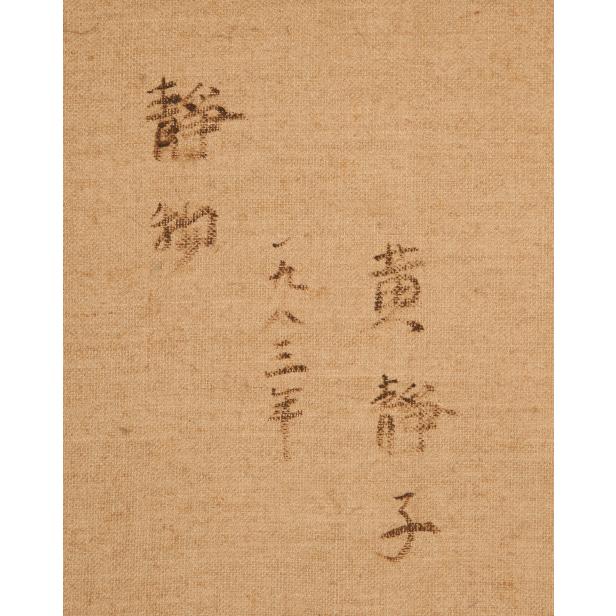 靜物
一九八三年
黄靜子